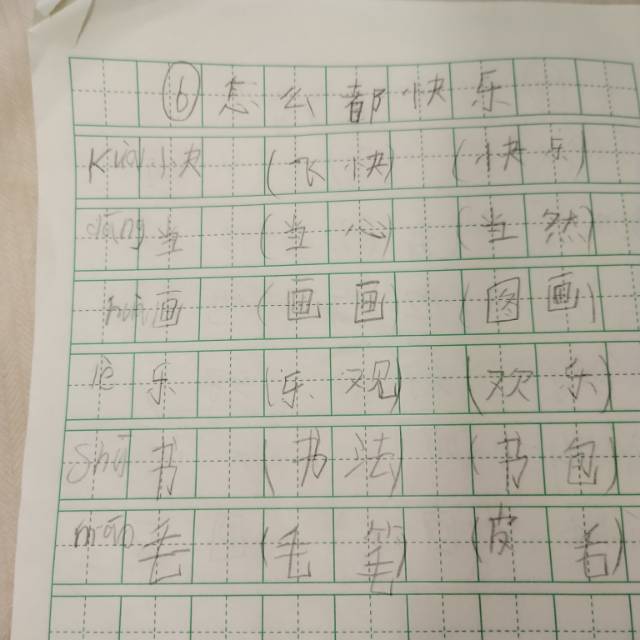 ⑥怎么都快乐
kuài快 (飞快) (快乐)
dāng当 (当心) (当然)
huà画 (画画) (图画)
lè乐 (乐观) (欢乐)
shū书 (书法) (书包)
máo毛 (毛笔) (皮毛)